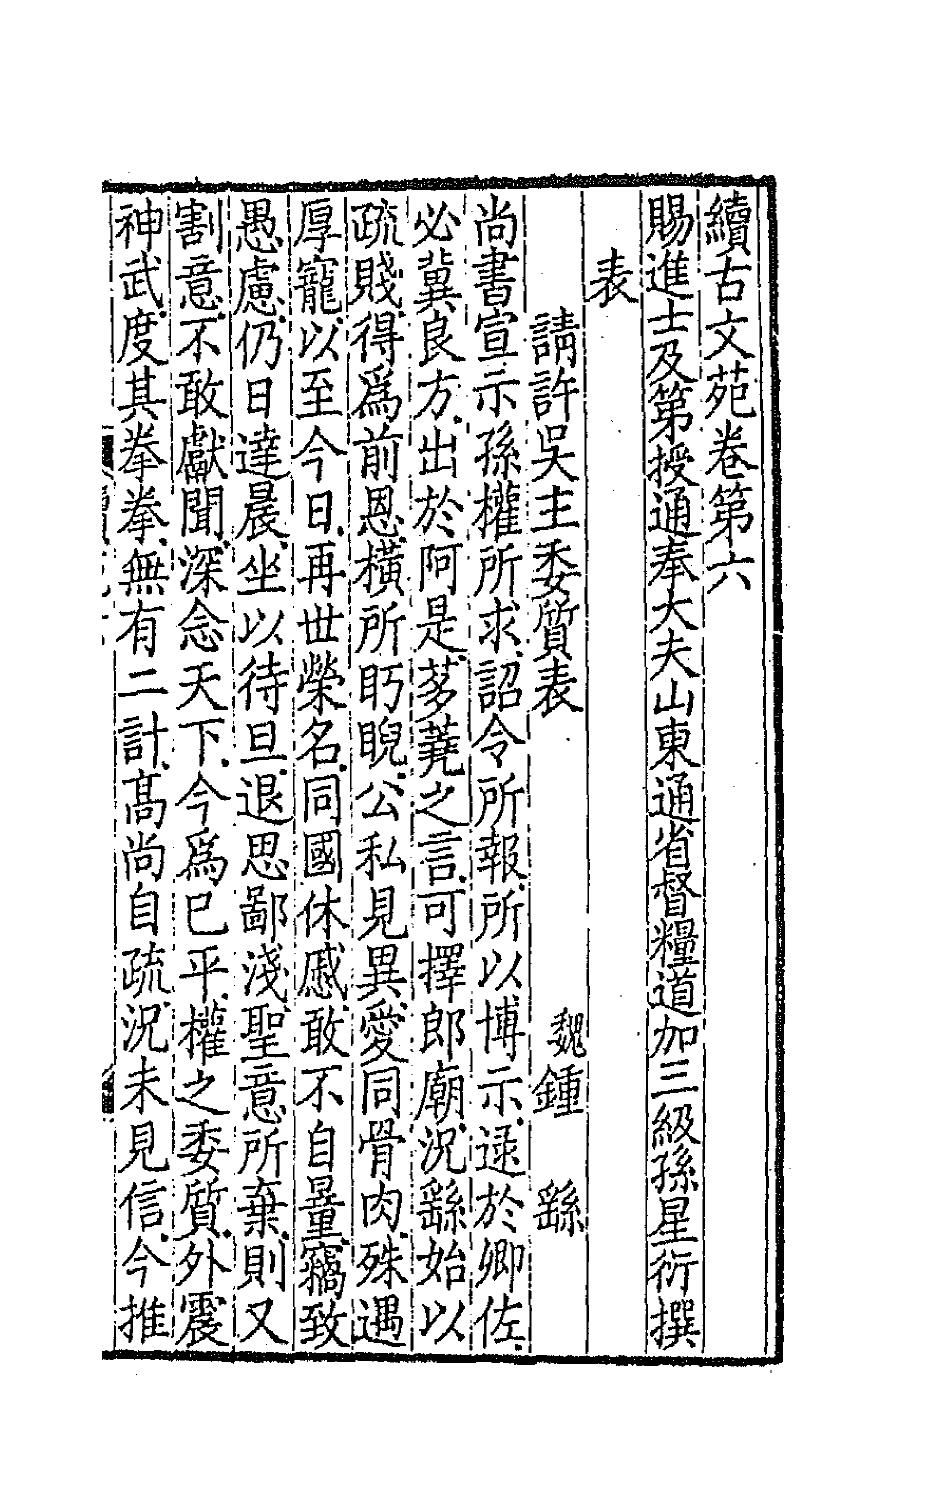 續古文苑卷第六
賜進士及第授通奉大夫山東通省督糧道加三級孫星衍撰
表
請許吳主委質表 魏鍾 繇
尚書宣示孫權所求詔令所報所以博示逮於卿佐
必冀良方出於阿是芻蕘之言可擇郎廟況繇始以
疏賤得爲前恩橫所眄睨公私見異愛同骨肉殊遇
厚寵以至今日再世榮名同國休慼敢不自量竊致
愚慮仍日達晨坐以待旦退思鄙淺聖意所棄則又
割意不敢獻聞深念天下今爲已平權之委質外震
神武度其拳拳無有二計高尚自疏況未見信今推